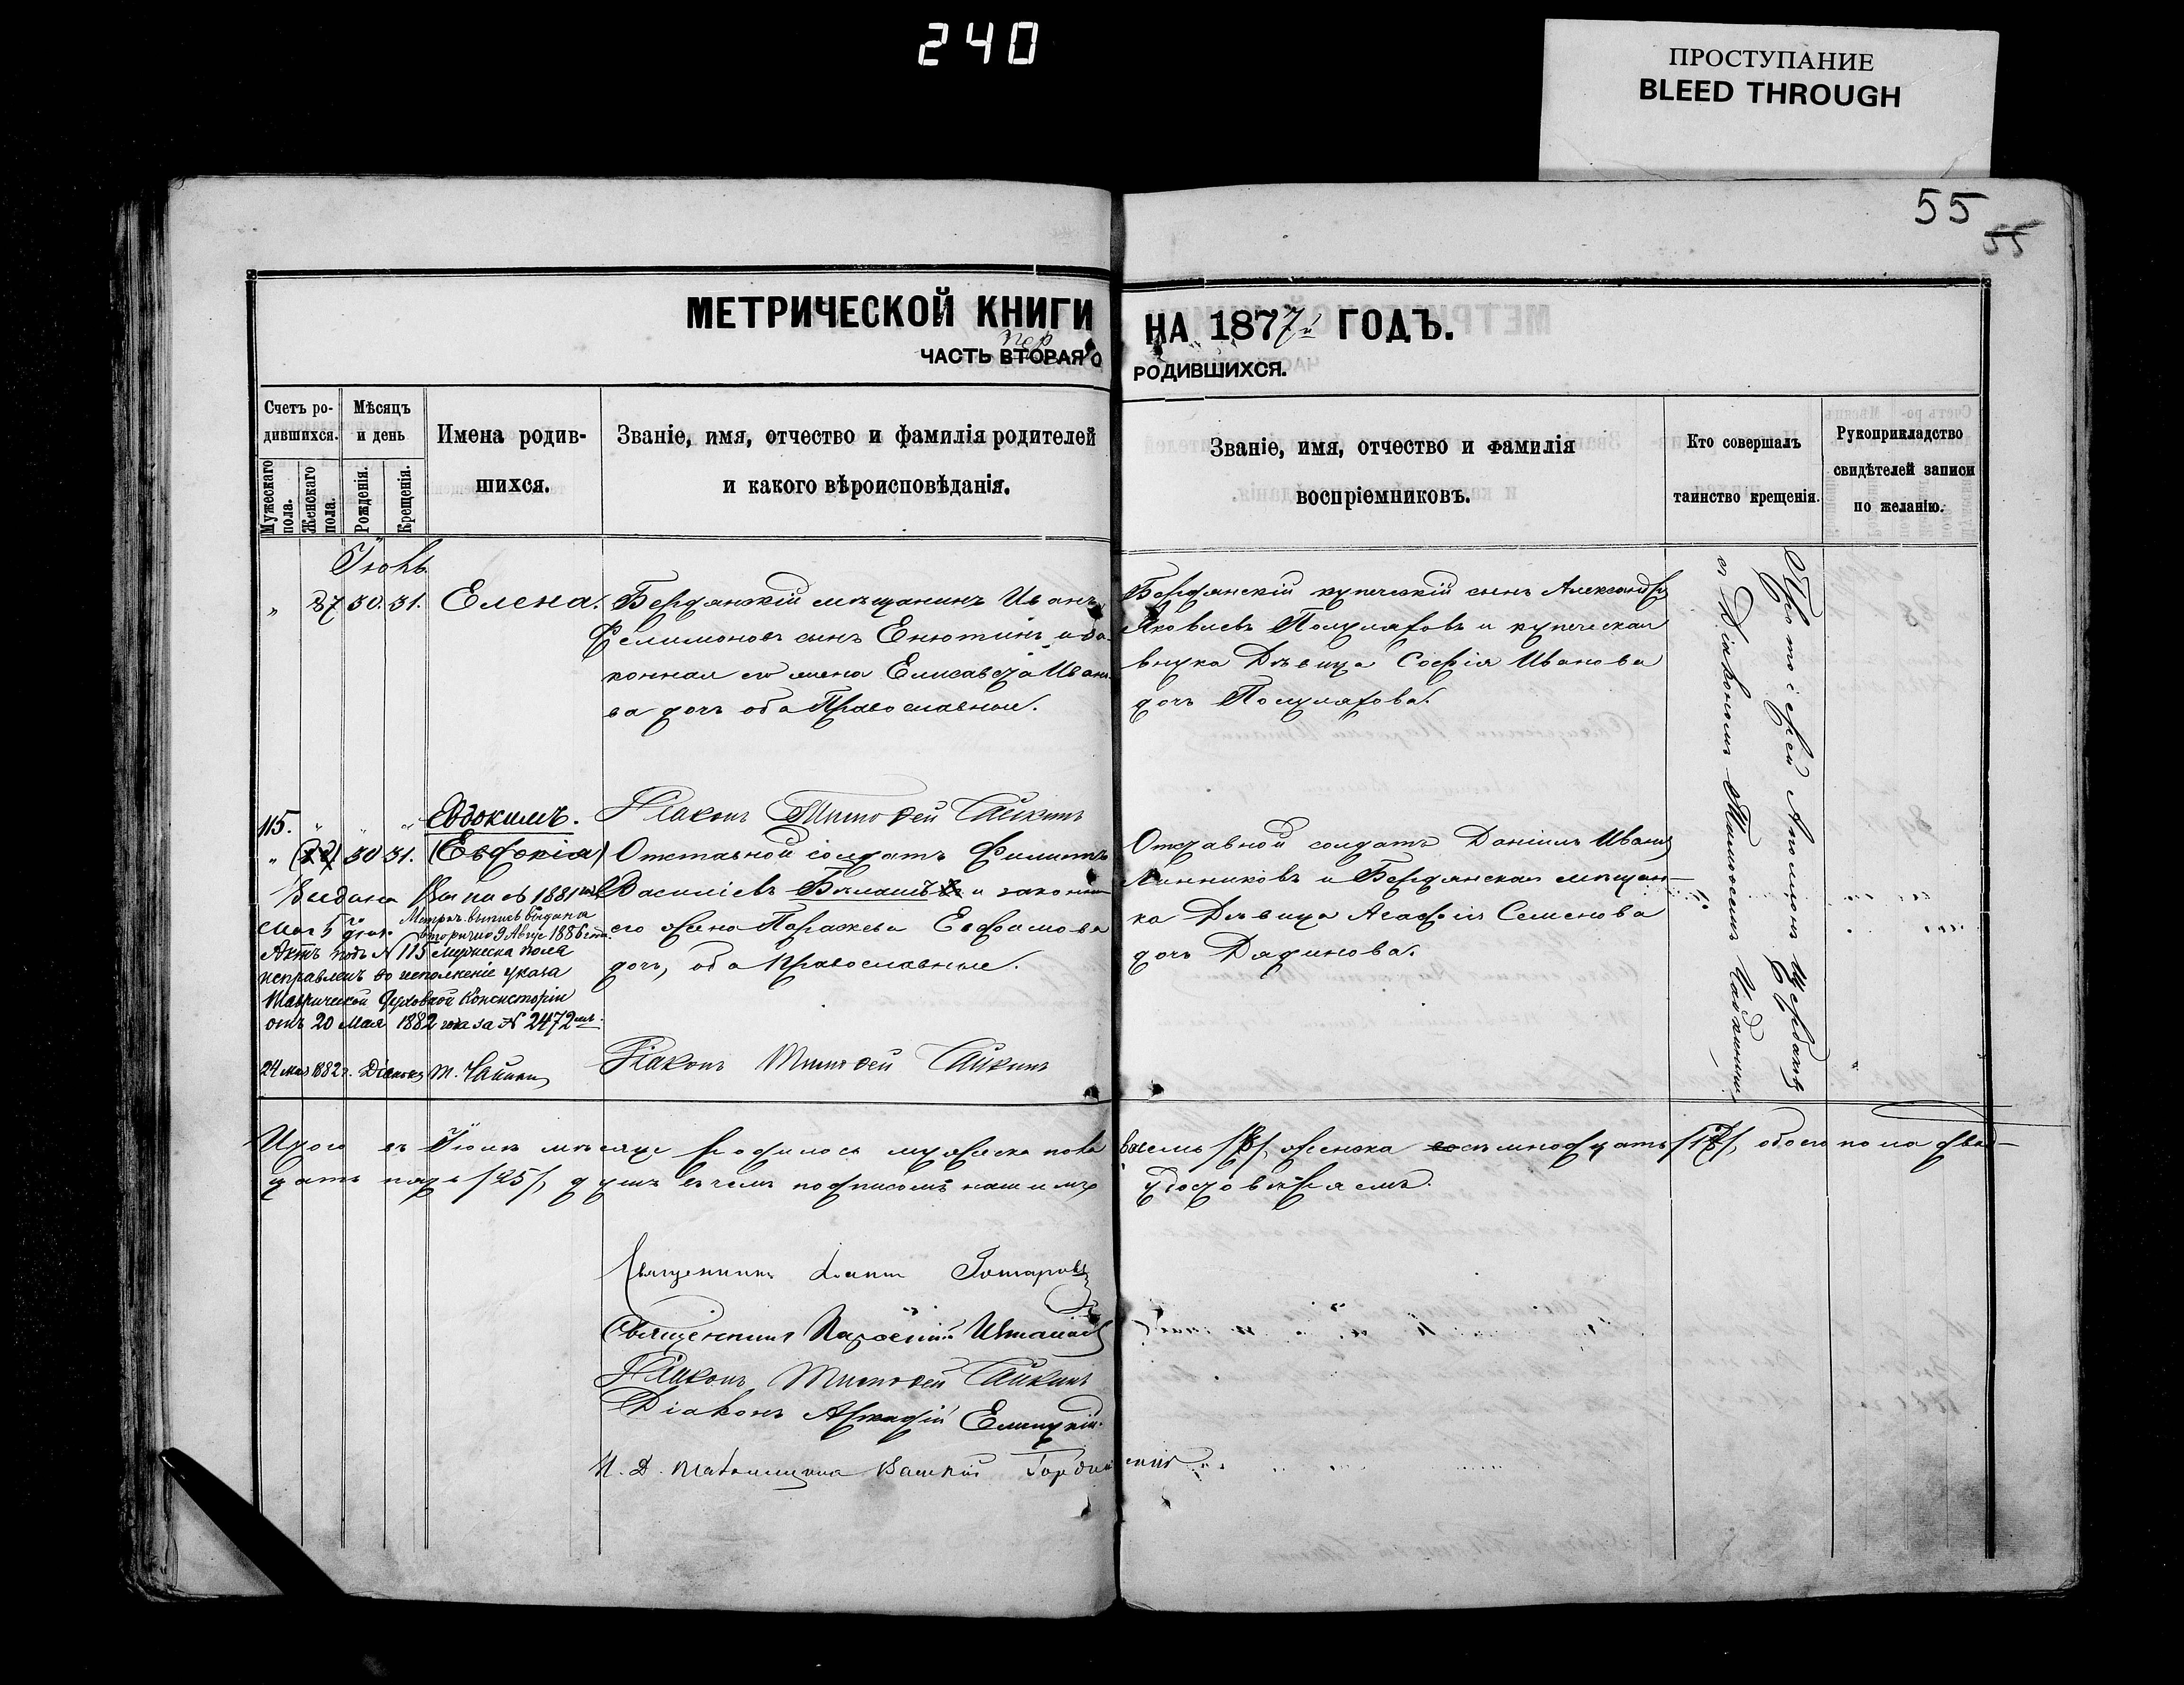 240
ПРОСТУПАНИЕ
BLEED THROUGH
55
55
МЕТРИЧЕСКОЙ КНИГИ НА 1877й ГОДЪ.
пер
ЧАСТЬ ВТОРАЯ О РОДИВШИХСЯ.
Счетъ ро-
дившихся.
Мужескаго пола.
Женскаго пола.
Мѣсяцъ
и день
Рожденія.
Крещенія.
Имена родив-
шихся.
Званіе, имя, отчество и фамилія родителей
и какого вѣроисповѣданія.
Званіе, имя, отчество и фамилія
воспріемниковъ.
Кто совершалъ
таинство крещенія.
Рукоприкладство
свидѣтелей записи
по желанію.
Іюнь
" 87 30. 31. Елена.
Бердянскій мѣщанинъ Иванъ
Филимоновъ сынъ Енютинъ и за
конная его жена Елисавета Ивано
ва дочь оба Православные.
Бердянскій купеческій сынъ Александръ
Яковлевъ и купеческая
внука Дѣвица Софія Иванова
дочь
Діаконъ Тимофей Чайкинъ
115. " " " Евдокимъ.
" 30 31. (Евдокія)
Отставной солдатъ Филиппъ
Василіевъ и законная
его жена Параскева
дочь, оба Православные.
Отставной солдатъ Даніилъ Ивановъ
Линниковъ и Бердянская мѣщан-
ка Дѣвица Агафія Семенова
дочь
Выдана Выпись 1881 года
Мая 5 дня.
Метрич. выпись выдана
вторично 9 Авгус. 1886 года.
Актъ подъ № 115 мужеска пола
исправленъ во исполненіе указа
Таврической Духовной Консисторіи
отъ 20 Мая 1882 года за № 2472мъ.
24 мая 1882 г. Діаконъ Т. Чайкинъ
Діаконъ Тимофей Чайкинъ
Протоіерей
съ Діакономъ Тимофеемъ Чайкинымъ
Итого въ Іюнѣ мѣсяцѣ родилось мужеска пола восемь /8/, женска семнадцать /17/, обоего пола двад-
цать пять /25/, душъ въ чемъ подписомъ нашимъ удостовѣряемъ.
Священникъ Іоаннъ
Священникъ
Діаконъ Тимофей Чайкинъ
Діаконъ Аркадій
И. Д. Псаломщика Василій